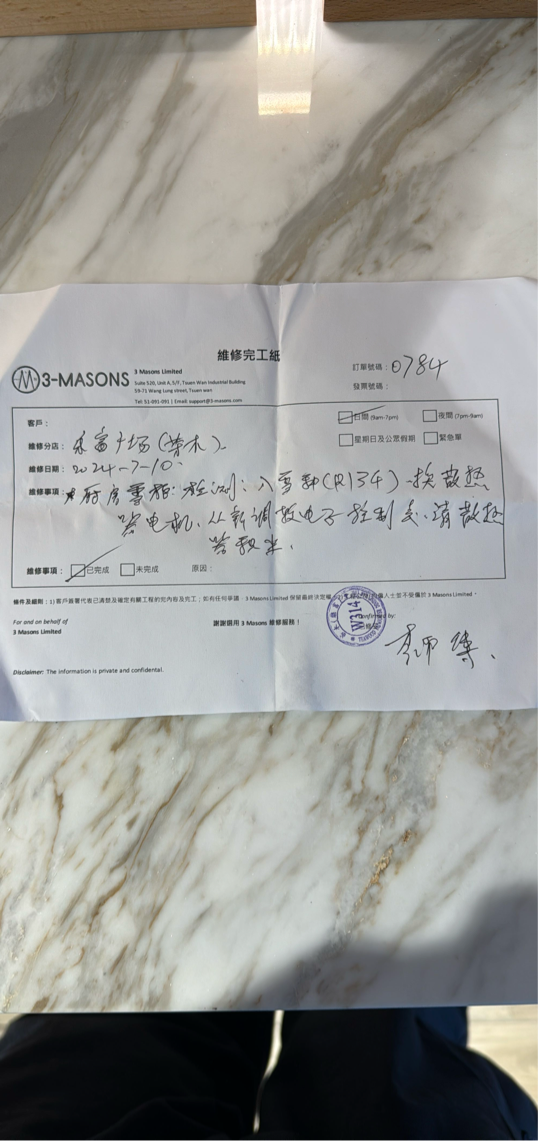 維修完工紙
3-MASONS
3 Masons Limited
Suite 520, Unit A, 5/F, Tsuen Wan Industrial Building
59-71 Wang Lung street, Tsuen wan
Tel: 51-091-091 | Email: support@3-masons.com
訂單號碼：0784
發票號碼：
客戶：
日間 (9am-7pm) 夜間 (7pm-9am)
維修分店：
星期日及公眾假期 緊急單
維修日期：2024-7-10.
維修事項：廚房雪柜：检测：入雪种(R134)、换散热
器电机、从新調教电子控制系、清散热
維修事項： 已完成 未完成 原因：
條件及細則：1) 客戶簽署代表已清楚及確定有關工程的完內容及完工；如有任何爭議，3 Masons Limited 保留最終決定權。
For and on behalf of
3 Masons Limited
謝謝選用 3 Masons 維修服務！
W314
Confirmed by:
Disclaimer: The information is private and confidential.